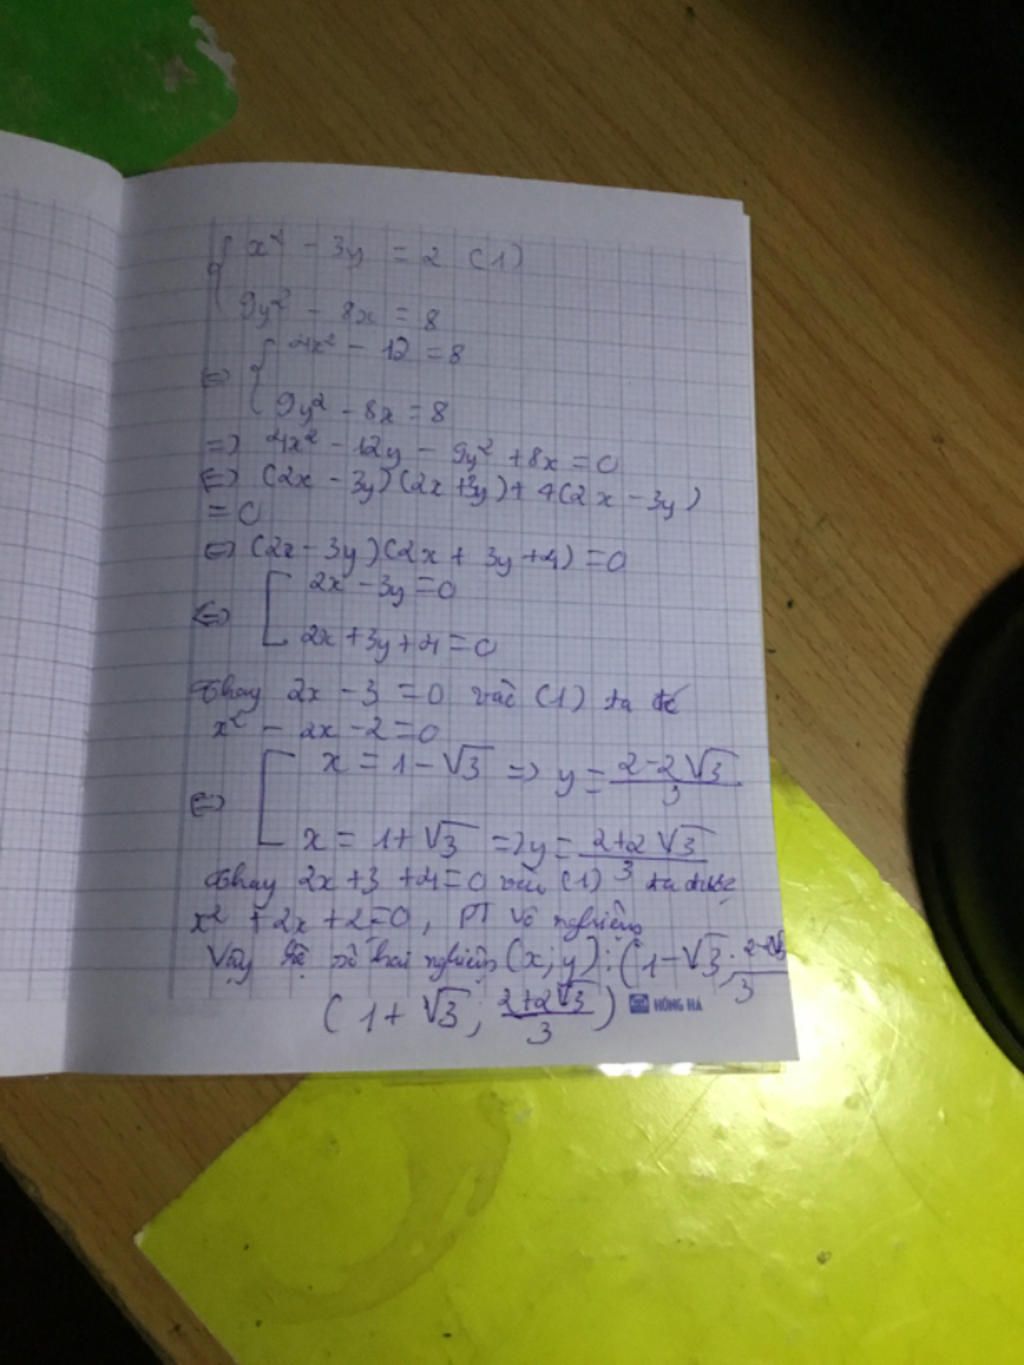 x² - 3y = 2 (1)
9y² - 8x = 8
<=> 4x² - 12 = 8
9y² - 8x = 8
=> 4x² - 12y - 9y² + 8x = 0
<=> (2x - 3y)(2x + 3y) + 4(2x - 3y)
= 0
<=> (2x - 3y)(2x + 3y + 4) = 0
<=> 2x - 3y = 0
2x + 3y + 4 = 0
Thay 2x - 3 = 0 vào (1) ta đc
x² - 2x - 2 = 0
<=> x = 1 - √3 => y = (2 - 2√3)/3
x = 1 + √3 => y = (2 + 2√3)/3
Thay 2x + 3 + 4 = 0 vào (1) ta được
x² + 2x + 2 = 0, PT vô nghiệm
Vậy hệ có hai nghiệm (x; y): (1 - √3; (2 - 2√3)/3
(1 + √3; (2 + 2√3)/3)
HỒNG HÀ